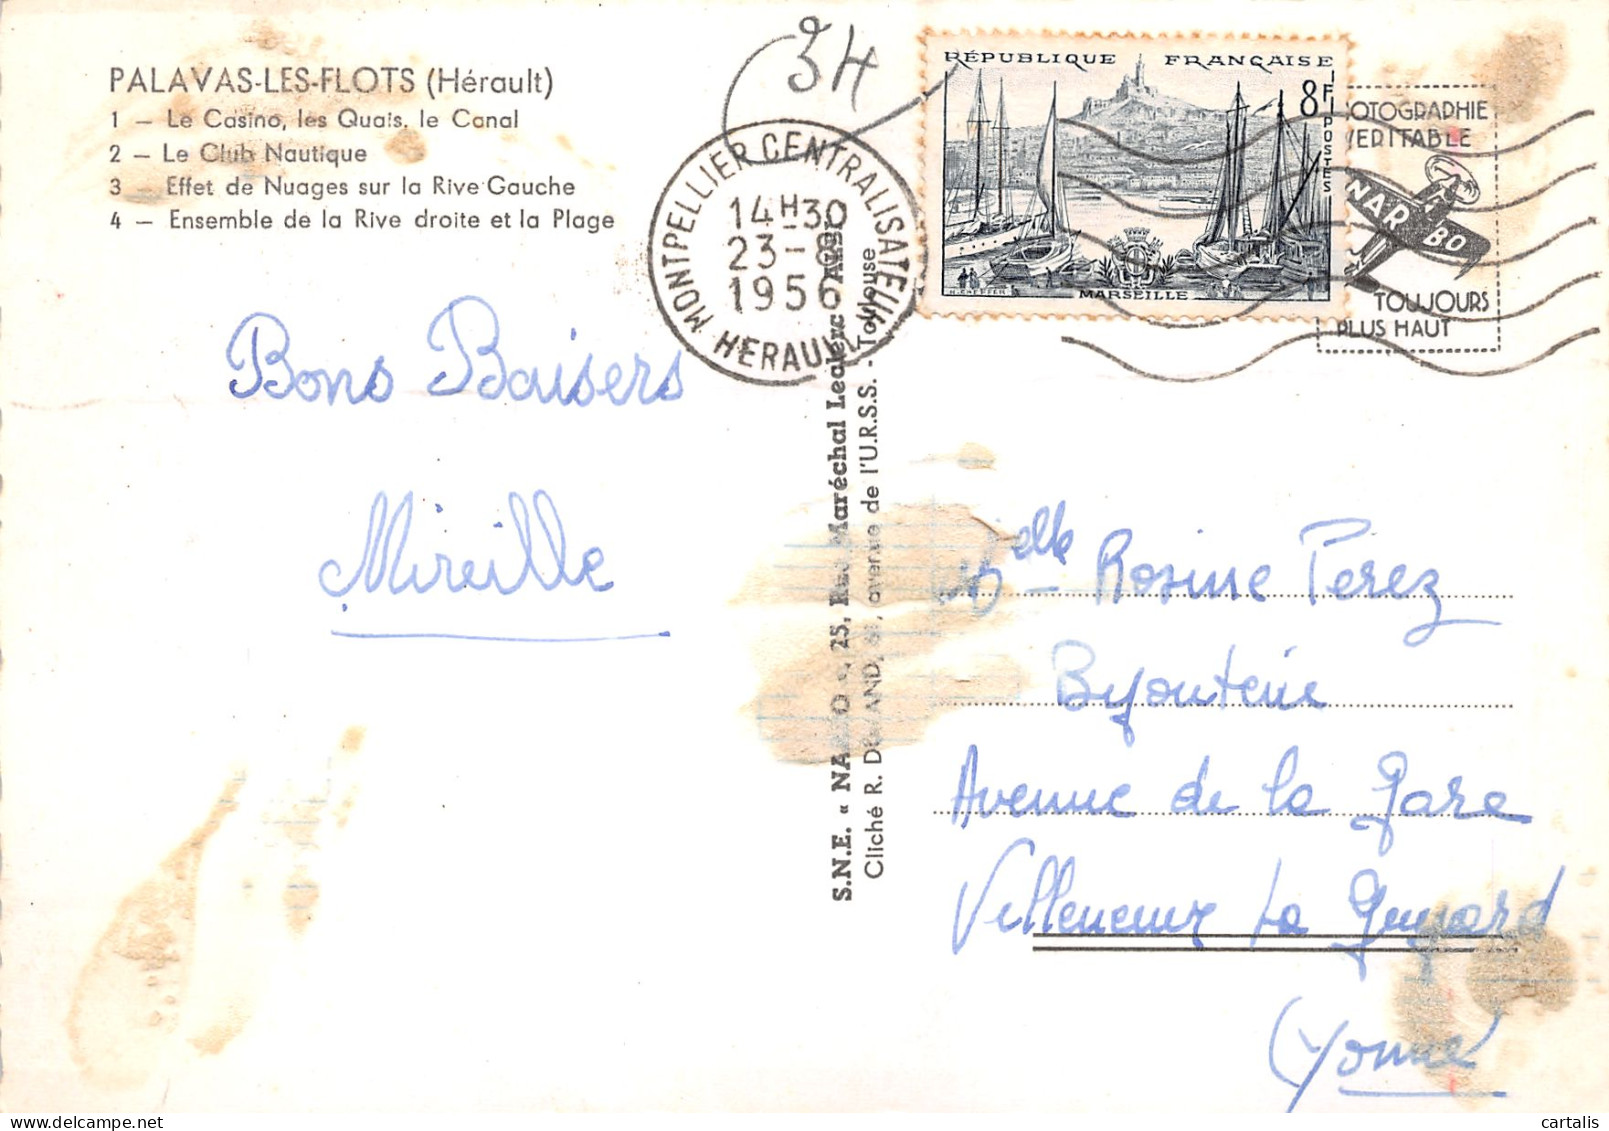 PALAVAS-LES-FLOTS (Hérault)
1 — Le Casino, les Quais, le Canal
2 — Le Club Nautique
3 — Effet de Nuages sur la Rive Gauche
4 — Ensemble de la Rive droite et la Plage
34
MONTPELLIER CENTRALISATEUR
14H30
23 - 8
1956
HERAULT
RÉPUBLIQUE FRANÇAISE
8F
POSTES
MARSEILLE
PHOTOGRAPHIE
VERITABLE
NARBO
TOUJOURS
PLUS HAUT
Bons Baisers
Mireille
S.N.E. « NARBO », 25, Rue Maréchal Leclerc
Cliché R. avenue de l'U.R.S.S. - Toulouse
Melle Rosine Perez
Bijouterie
Avenue de la Gare
Villeneuve la Guyard
(Yonne
cartalis